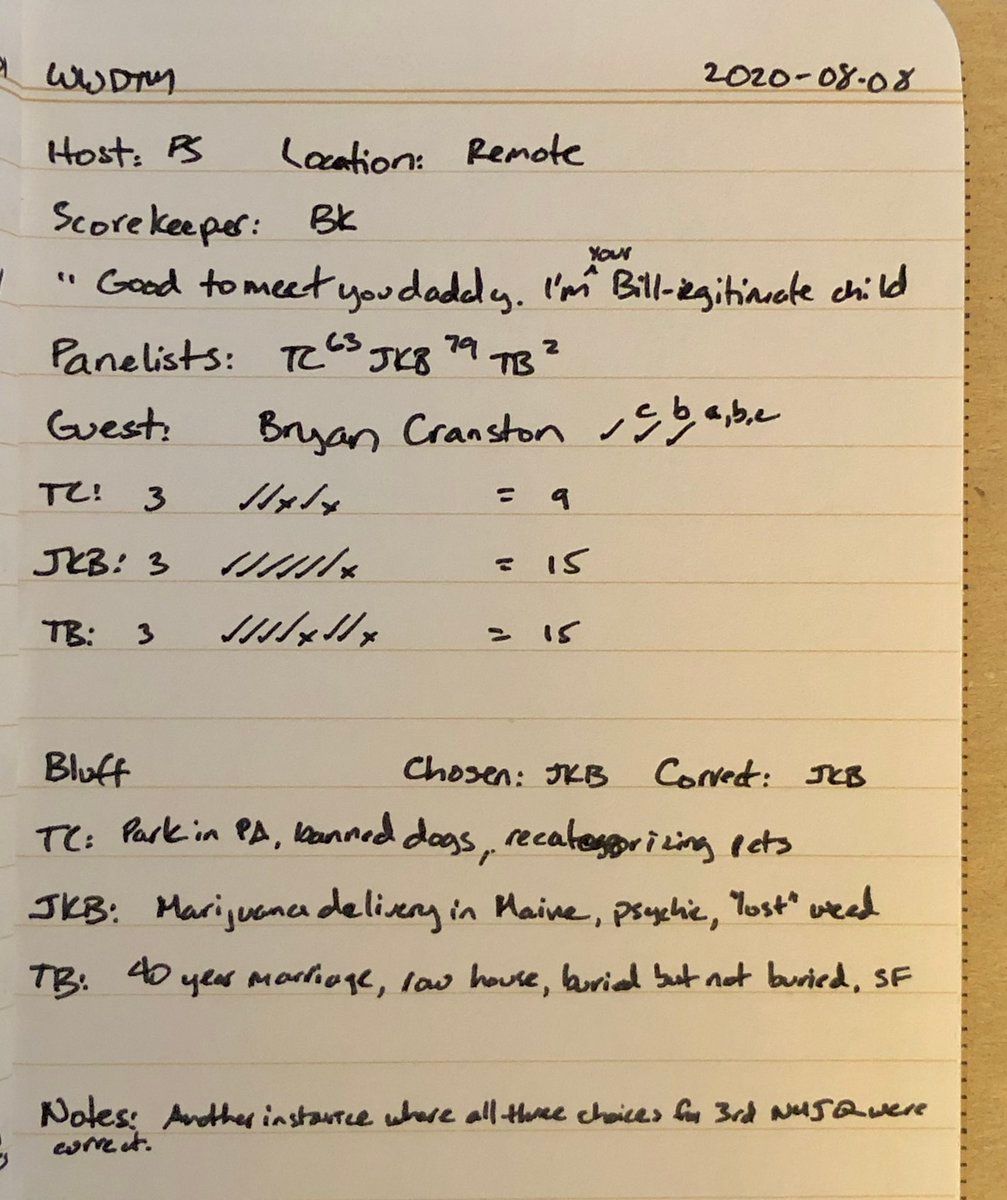 WWDTM 2020-08-08
Host: PS Location: Remote
Scorekeeper: BK
" Good to meet you daddy. I'm ^your Bill-egitimate child
Panelists: TC^63 JKB^79 TB^2
Guest: Bryan Cranston ✓ ✓^c ✓^b a,b,c
TC: 3 ✓✓x✓x = 9
JKB: 3 ✓✓✓✓✓✓x = 15
TB: 3 ✓✓✓✓x✓✓x = 15
Bluff Chosen: JKB Correct: JKB
TC: Park in PA, banned dogs, recategorizing pets
JKB: Marijuana delivery in Maine, psychic, "lost" weed
TB: 40 year marriage, row house, buried but not buried, SF
Notes: Another instance where all three choices for 3rd NMJQ were
correct.